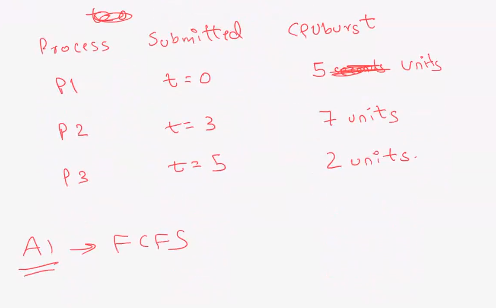 Process Submitted CPUburst
P1 t=0 5 units
P2 t=3 7 units
P3 t=5 2 units.
A1 → FCFS